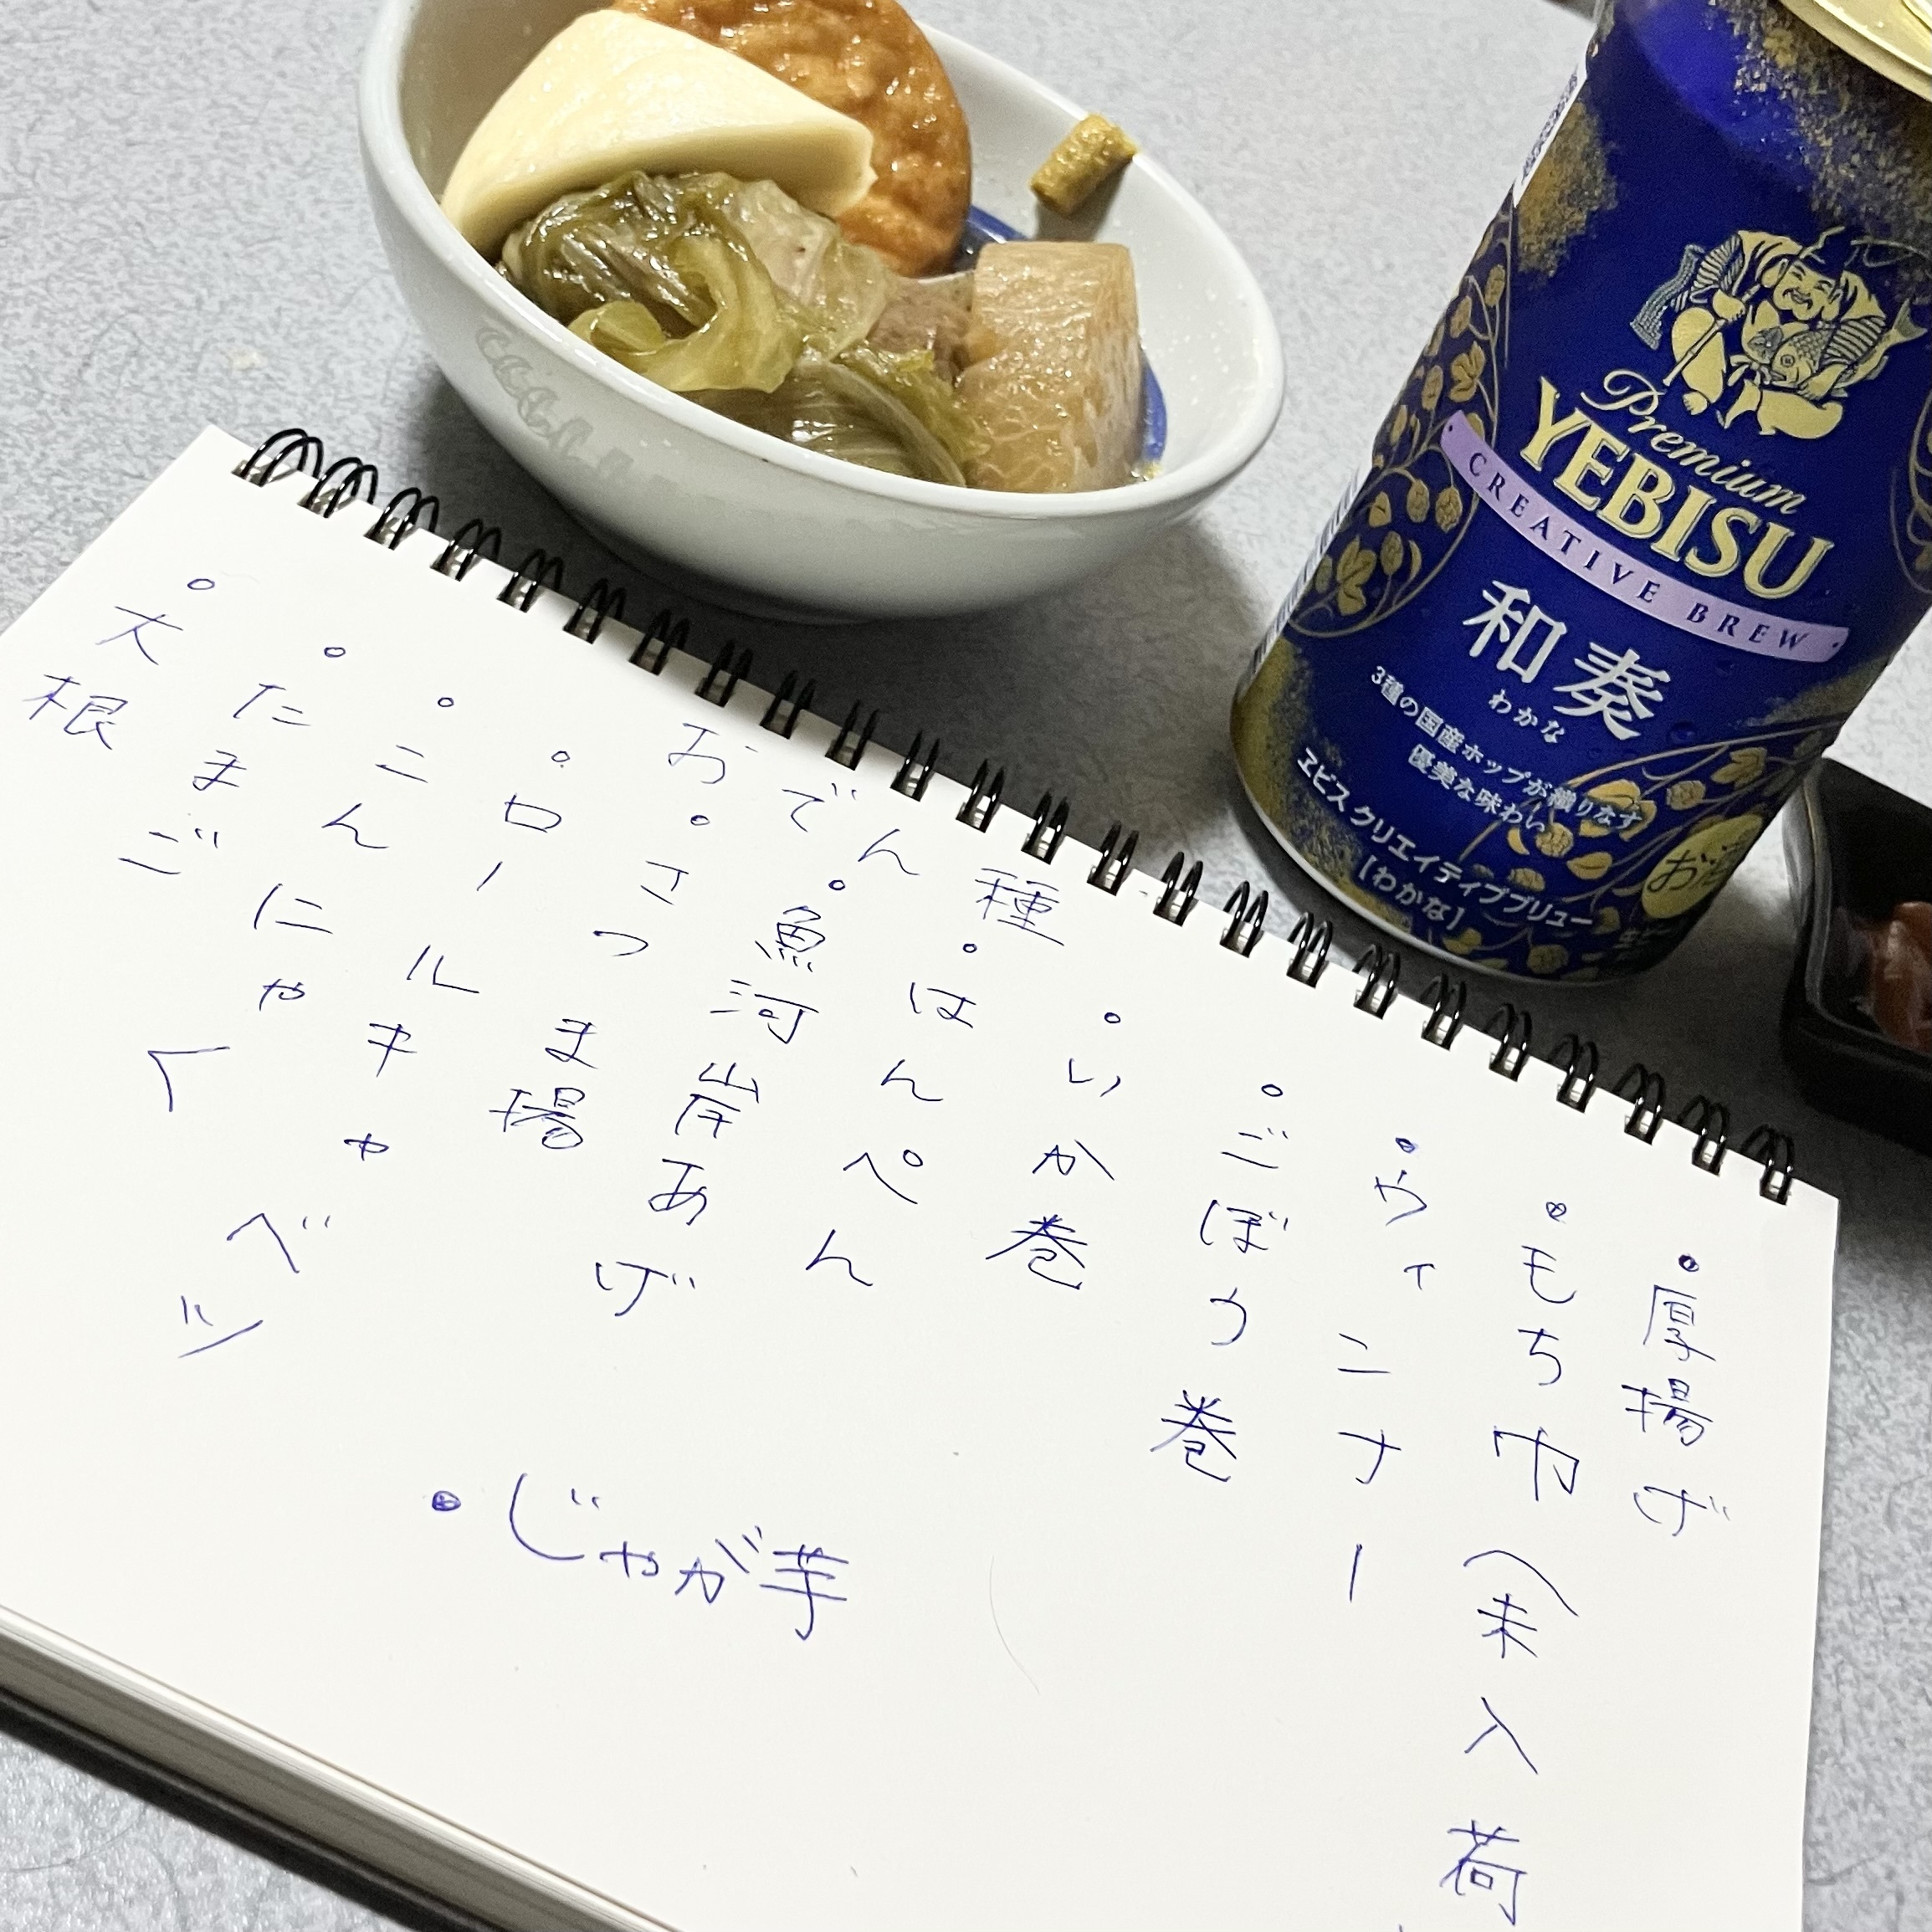 おでん種
・厚揚げ
・もち巾(未入荷
・ウィンナー
・ごぼう巻
・いか巻
・はんぺん
・魚河岸あげ
・さつま揚
・ロールキャベツ
・こんにゃく
・たまご
・大根
・じゃが芋
Premium
YEBISU
CREATIVE BREW
和奏
わかな
3種の国産ホップが織りなす
優美な味わい
ヱビス クリエイティブブリュー
[わかな]